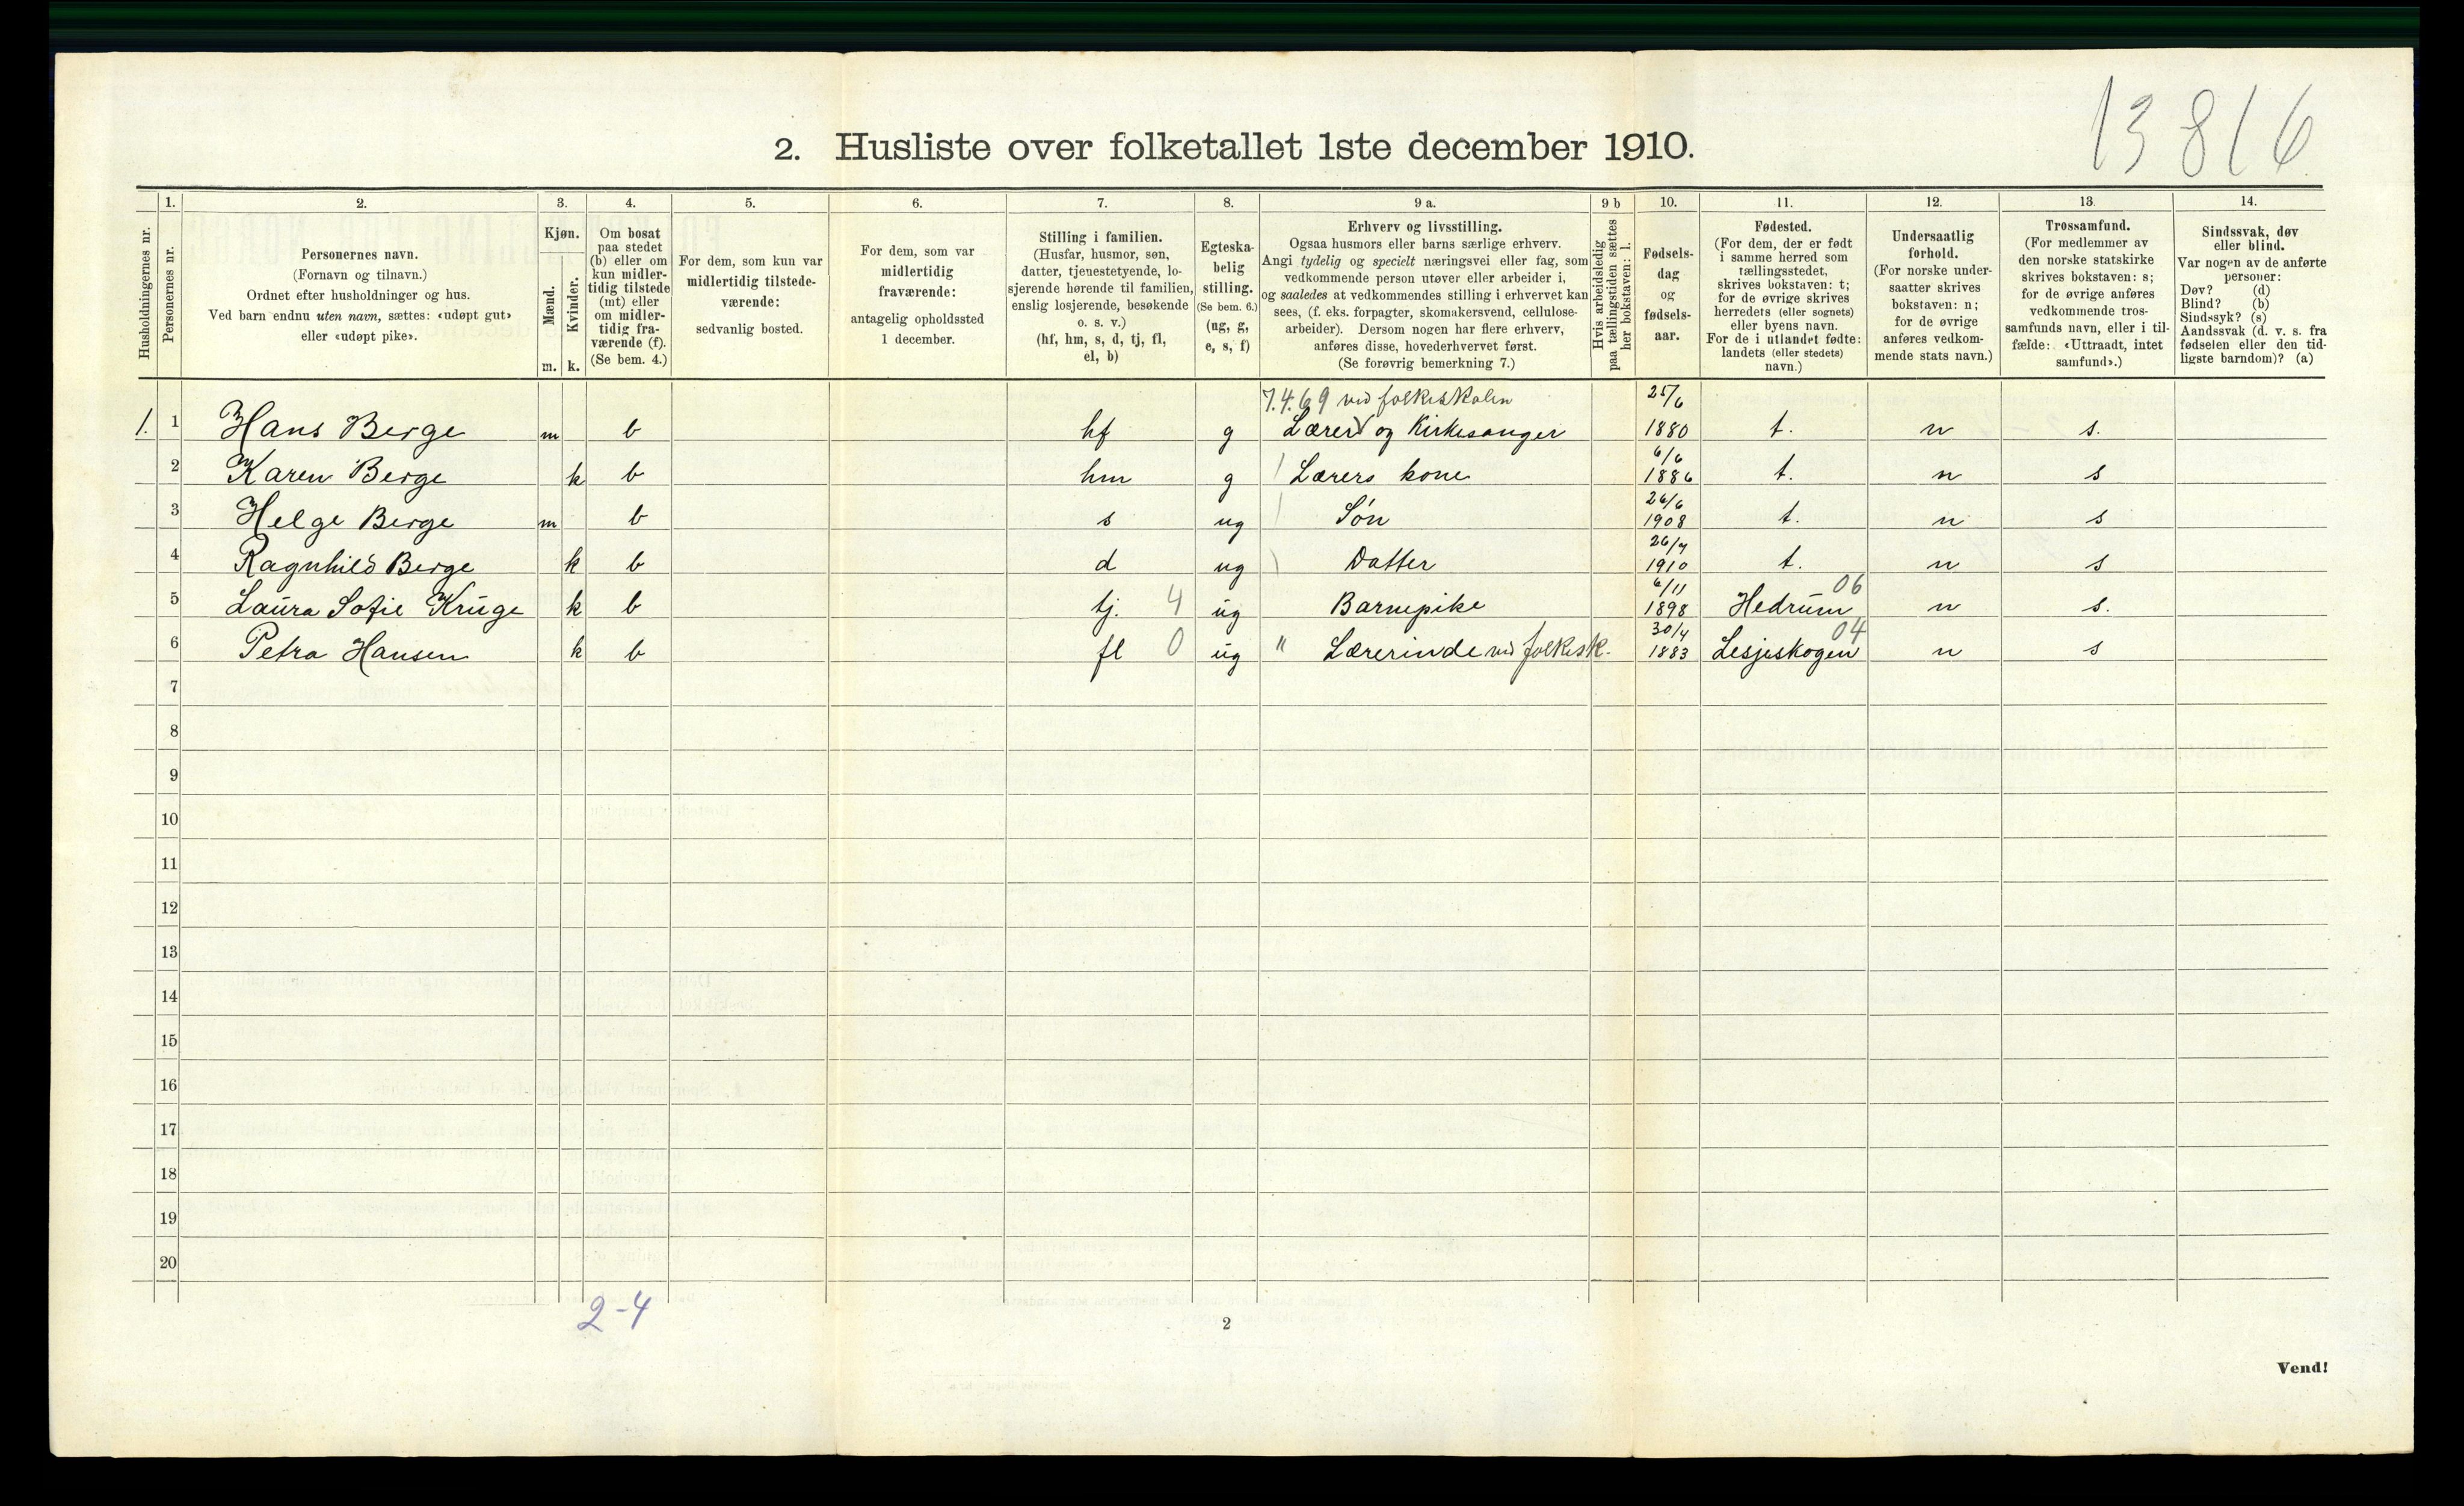 13816
2. Husliste over folketallet 1ste december 1910.
Husholdningernes nr.
1.
Personernes nr.
2.
Personernes navn.
(Fornavn og tilnavn.)
Ordnet efter husholdninger og hus.
Ved barn endnu uten navn, sættes: «udøpt gut»
eller «udøpt pike».
3.
Kjøn.
Mænd.
Kvinder.
m. k.
4.
Om bosat
paa stedet
(b) eller om
kun midler-
tidig tilstede
(mt) eller
om midler-
tidig fra-
værende (f).
(Se bem. 4.)
5.
For dem, som kun var
midlertidig tilstede-
værende:
sedvanlig bosted.
6.
For dem, som var
midlertidig
fraværende:
antagelig opholdssted
1 december.
7.
Stilling i familien.
(Husfar, husmor, søn,
datter, tjenestetyende, lo-
sjerende hørende til familien,
enslig losjerende, besøkende
o. s. v.)
(hf, hm, s, d, tj, fl,
el, b)
8.
Egteska-
belig
stilling.
(Se bem. 6.)
(ug, g,
e, s, f)
9 a.
Erhverv og livsstilling.
Ogsaa husmors eller barns særlige erhverv.
Angi tydelig og specielt næringsvei eller fag, som
vedkommende person utøver eller arbeider i,
og saaledes at vedkommendes stilling i erhvervet kan
sees, (f. eks. forpagter, skomakersvend, cellulose-
arbeider). Dersom nogen har flere erhverv,
anføres disse, hovederhvervet først.
(Se forøvrig bemerkning 7.)
9 b
Hvis arbeidsledig
paa tællingstiden sættes
her bokstaven: l.
10.
Fødsels-
dag
og
fødsels-
aar.
11.
Fødested.
(For dem, der er født
i samme herred som
tællingsstedet,
skrives bokstaven: t;
for de øvrige skrives
herredets (eller sognets)
eller byens navn.
For de i utlandet fødte:
landets (eller stedets)
navn.)
12.
Undersaatlig
forhold.
(For norske under-
saatter skrives
bokstaven: n;
for de øvrige
anføres vedkom-
mende stats navn.)
13.
Trossamfund.
(For medlemmer av
den norske statskirke
skrives bokstaven: s;
for de øvrige anføres
vedkommende tros-
samfunds navn, eller i til-
fælde: «Uttraadt, intet
samfund».)
14.
Sindssvak, døv
eller blind.
Var nogen av de anførte
personer:
Døv? (d)
Blind? (b)
Sindssyk? (s)
Aandssvak (d. v. s. fra
fødselen eller den tid-
ligste barndom)? (a)
7.4.69 ved folkeskolen 25/6
1. 1 Hans Berge m b hf g Lærer og Kirkesanger 1880 t. n s.
6/6
2 Karen Berge k b hm g Lærers kone 1886 t. n s
26/6
3 Helge Berge m b s ug Søn 1908 t. n s
4 Ragnhild Berge k b d ug Datter 1910 t. n s
6/11 06
5 Laura Sofie Kruge k b tj. 4 ug Barnepike 1898 Hedrum n s.
30/4 04
6 Petra Hansen k b fl 0 ug " Lærerinde ved folkesk. 1883 Lesjeskogen n s
7
8
9
10
11
12
13
14
15
16
17
18
19
20
2-4
2
Vend!